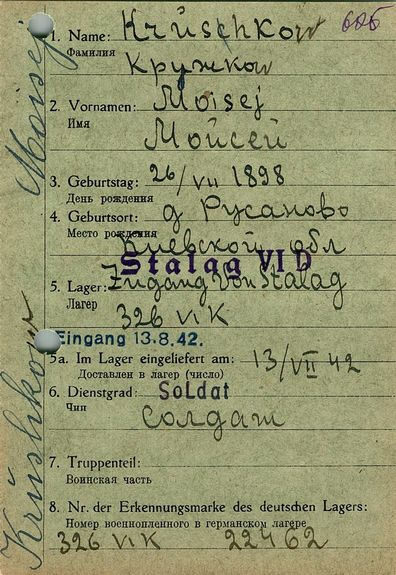 686
1. Name: Krüschkow
Фамилия
Кружков
2. Vornamen: Moisej
Имя
Мойсей
3. Geburtstag: 26/VII 1898
День рождения
4. Geburtsort: д Русаново
Место рождения
Киевской обл
Stalag VI D
5. Lager: Zugang von Stalag
Лагер
326 VI K
Eingang 13.8.42.
5a. Im Lager eingeliefert am: 13/VII 42
Доставлен в лагер (число)
6. Dienstgrad: Soldat
Чин
Солдат
7. Truppenteil:
Воинская часть
8. Nr. der Erkennungsmarke des deutschen Lagers:
Номер военнопленного в германском лагере
326 VI K 22462
Krüshkow Moisej